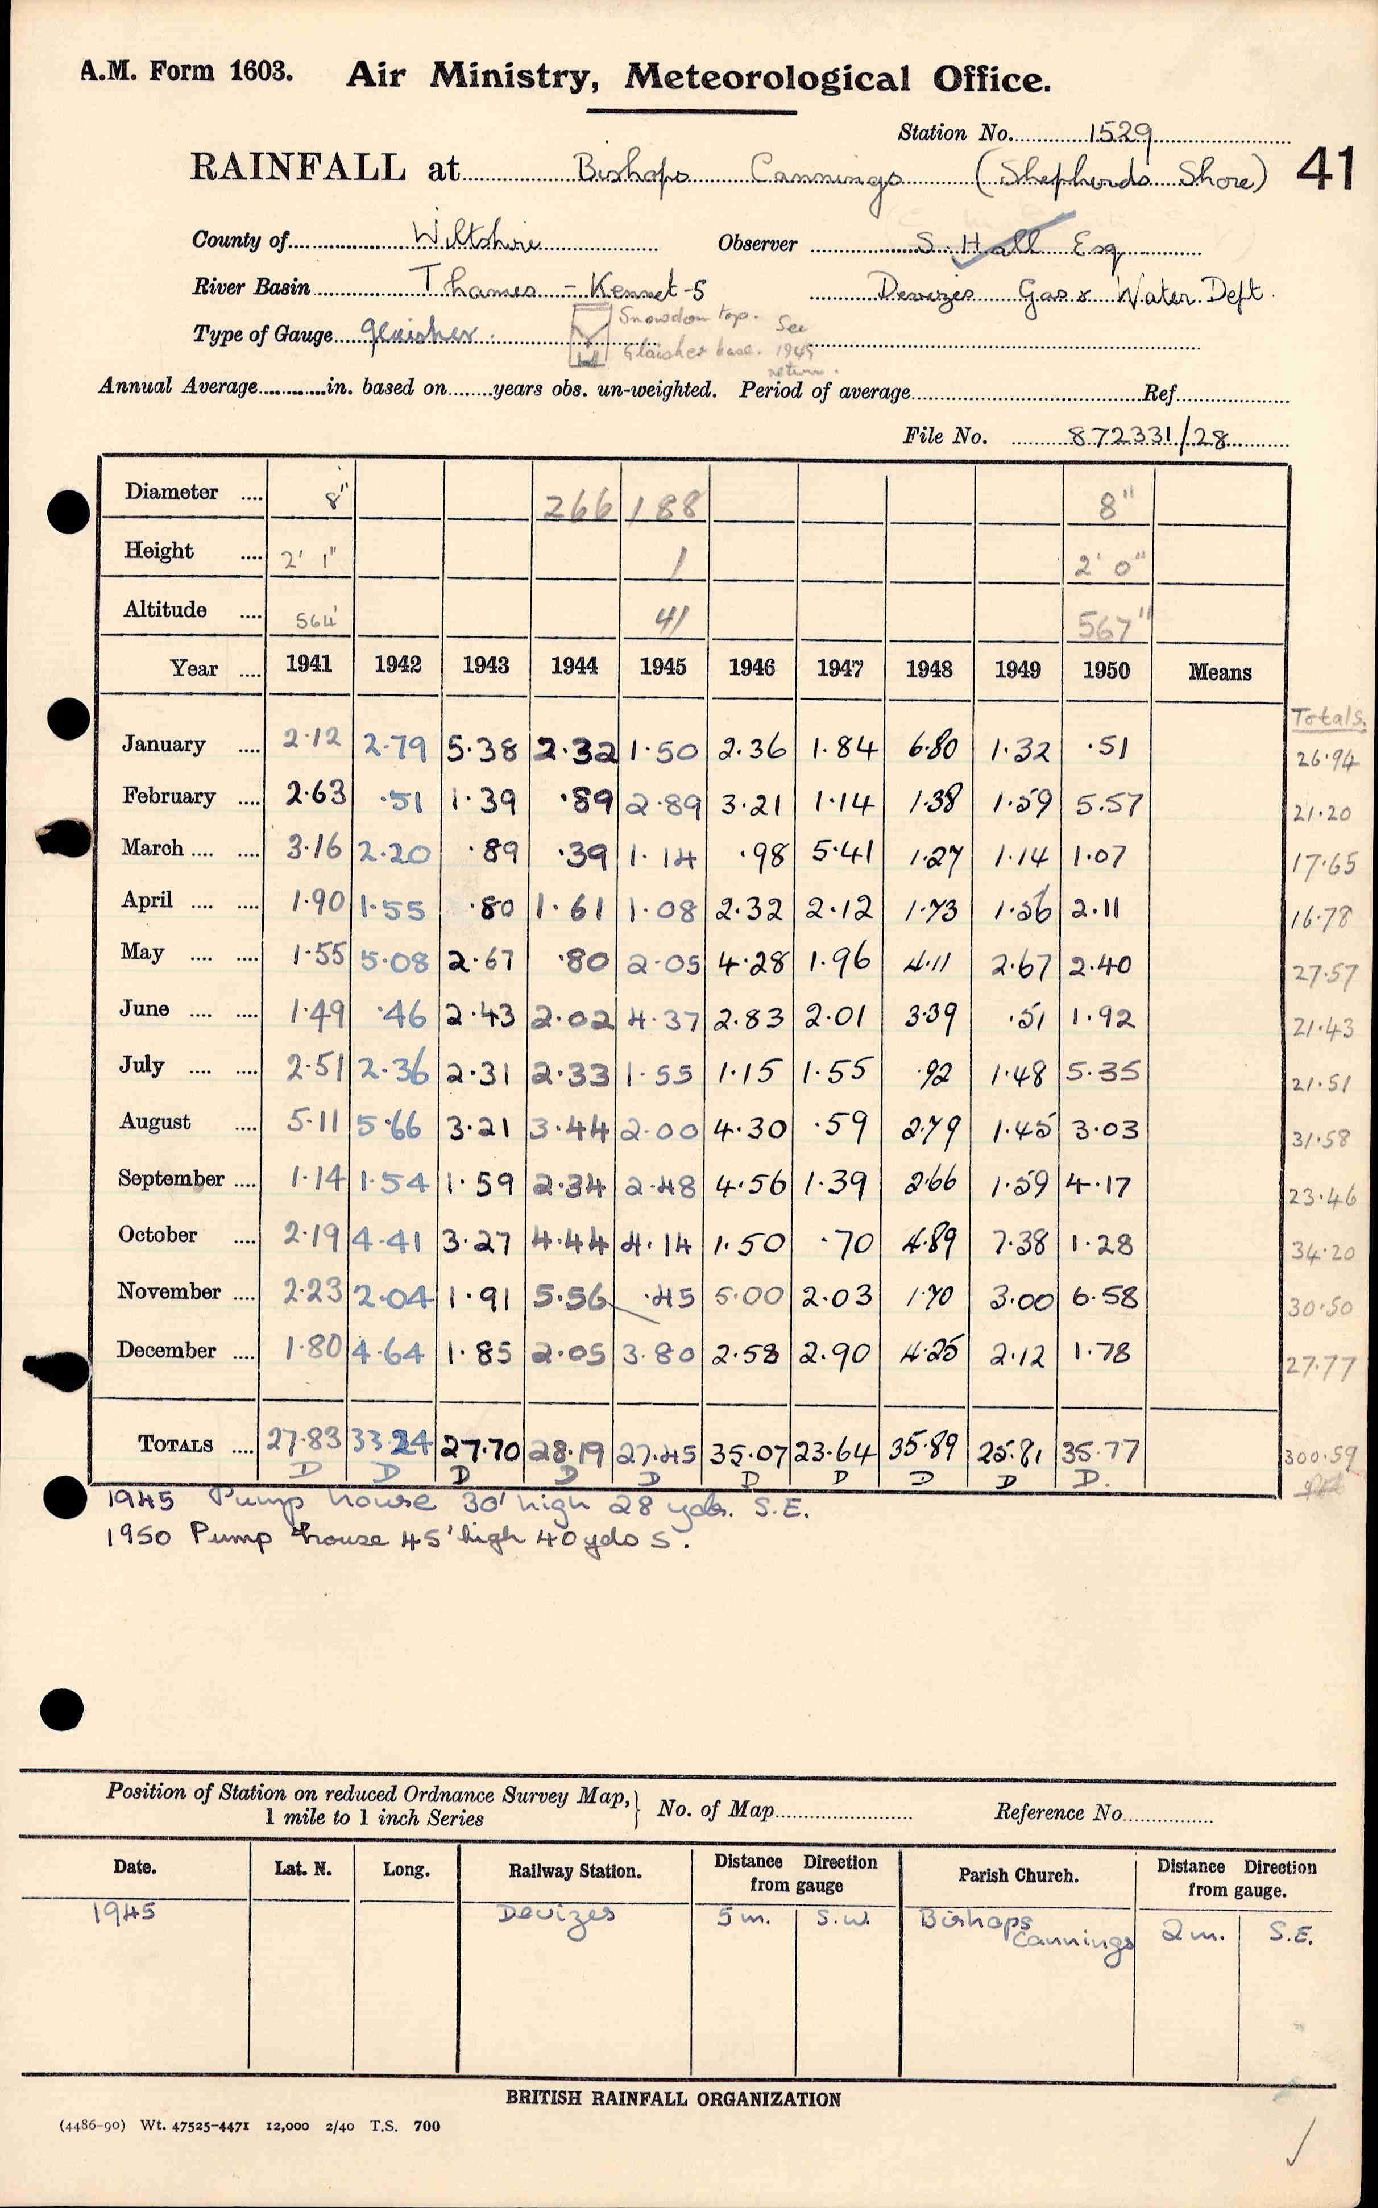 A.M. Form 1603. Air Ministry, Meteorological Office.
Station No. 1529
RAINFALL at Bishops Cannings (Shepherds Shore) 41
County of Wiltshire Observer S. Hall Esq
River Basin Thames - Kennet-5 Devizes Gas & Water Dept.
Type of Gauge glaisher. Snowdon top. See
Glaisher base. 1945
return.
Annual Average in. based on years obs. un-weighted. Period of average Ref
File No. 872331/28
Diameter 8" 266 188 8"
Height 2' 1" 1 2' 0"
Altitude 564' 41 567"
Year 1941 1942 1943 1944 1945 1946 1947 1948 1949 1950 Means
Totals.
January 2.12 2.79 5.38 2.32 1.50 2.36 1.84 6.80 1.32 .51 26.94
February 2.63 .51 1.39 .89 2.89 3.21 1.14 1.38 1.59 5.57 21.20
March 3.16 2.20 .89 .39 1.14 .98 5.41 1.27 1.14 1.07 17.65
April 1.90 1.55 .80 1.61 1.08 2.32 2.12 1.73 1.56 2.11 16.78
May 1.55 5.08 2.67 .80 2.05 4.28 1.96 4.11 2.67 2.40 27.57
June 1.49 .46 2.43 2.02 4.37 2.83 2.01 3.39 .51 1.92 21.43
July 2.51 2.36 2.31 2.33 1.55 1.15 1.55 .92 1.48 5.35 21.51
August 5.11 5.66 3.21 3.44 2.00 4.30 .59 2.79 1.45 3.03 31.58
September 1.14 1.54 1.59 2.34 2.48 4.56 1.39 2.66 1.59 4.17 23.46
October 2.19 4.41 3.27 4.44 4.14 1.50 .70 4.89 7.38 1.28 34.20
November 2.23 2.04 1.91 5.56 .45 5.00 2.03 1.70 3.00 6.58 30.50
December 1.80 4.64 1.85 2.05 3.80 2.58 2.90 4.25 2.12 1.78 27.77
TOTALS 27.83 33.24 27.70 28.19 27.45 35.07 23.64 35.89 25.81 35.77 300.59
D D D D D D D D D D.
1945 Pump house 30' high 28 yds. S.E.
1950 Pump house 45' high 40 yds S.
Position of Station on reduced Ordnance Survey Map,
1 mile to 1 inch Series No. of Map Reference No.
Date. Lat. N. Long. Railway Station. Distance Direction from gauge Parish Church. Distance Direction from gauge.
1945 Devizes 5m. S.W. Bishops Cannings 2m. S.E.
BRITISH RAINFALL ORGANIZATION
(4486-90) Wt. 47525-4471 12,000 2/40 T.S. 700